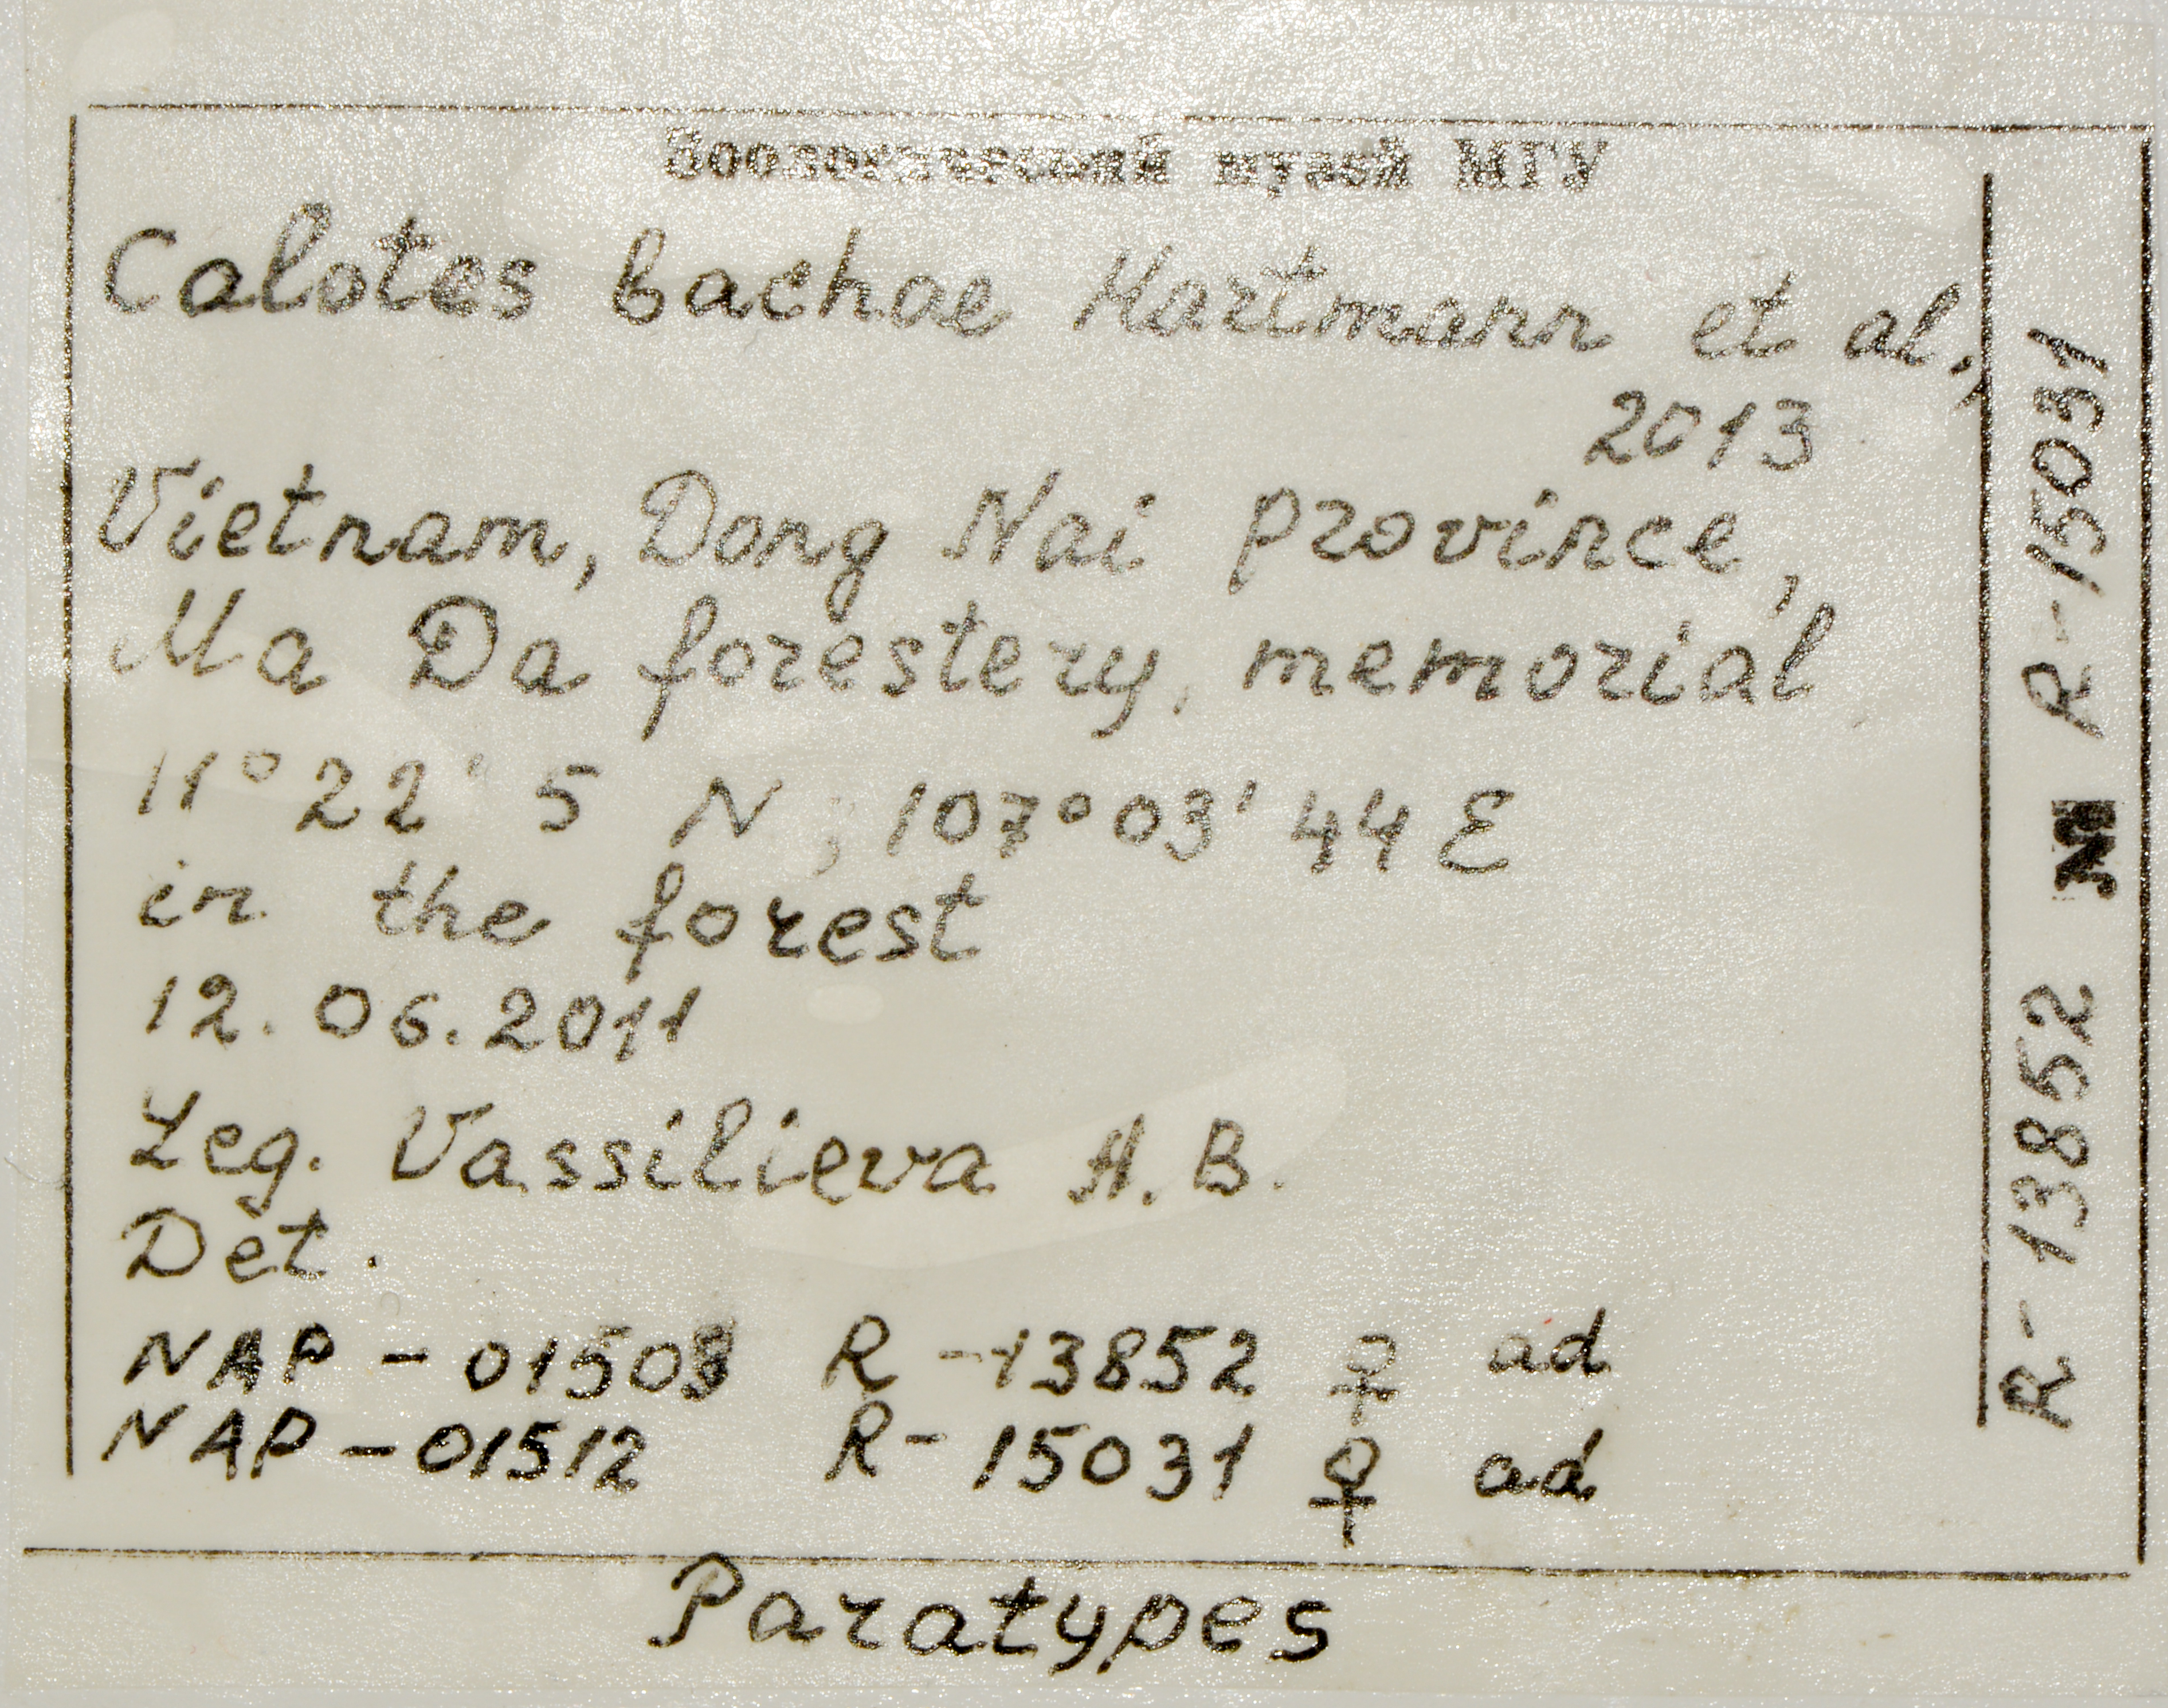 Зоологический музей МГУ
Calotes bachae Hartmann et al.,
2013
Vietnam, Dong Nai province,
Ma Da forestery, memorial
11°22' 5 N, 107°03' 44 E
in the forest
12.06.2011
Leg. Vassilieva A.B.
Det.
NAP - 01508 R - 13852 ♀ ad
NAP - 01512 R - 15031 ♀ ad
Paratypes
R - 13852 № R - 15031